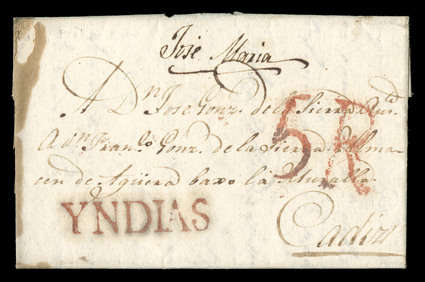 José Maria
A Dⁿ Jose Gonz. de la Sierra
A Dⁿ Franᶜᵒ Gonz. de la Sierra Alma-
cen de Agüera baxo la Muralla
5R
YNDIAS
Cadiz